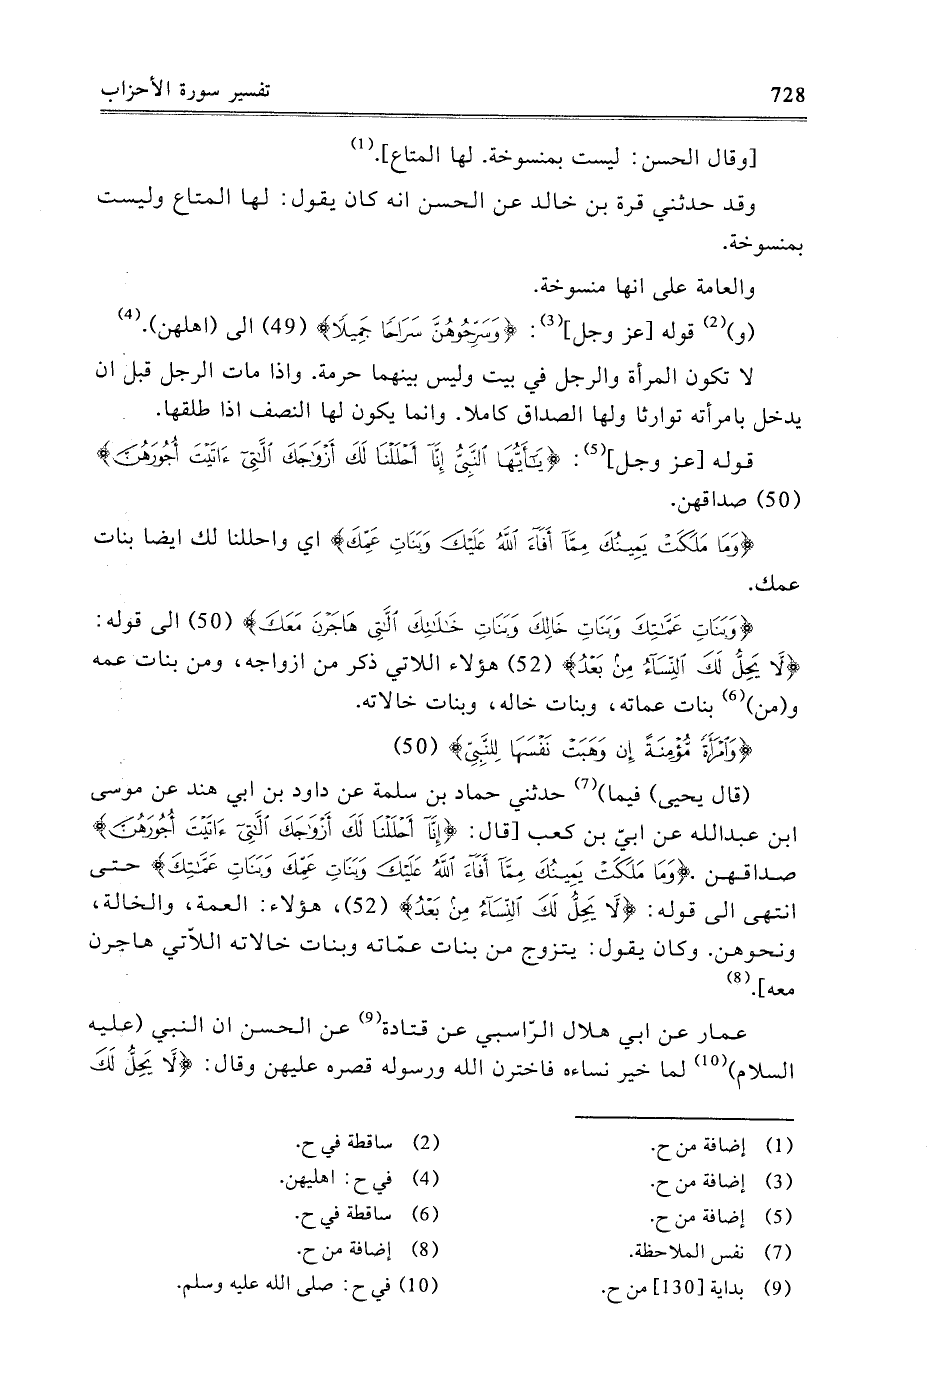 728
تفسير سورة الأحزاب
[وقال الحسن: ليست بمنسوخة. لها المتاع].(1)
وقد حدثني قرة بن خالد عن الحسن انه كان يقول: لها المتاع وليست
بمنسوخة.
والعامة على انها منسوخة.
(و)(2) قوله [عز وجل](3): ﴿وَسَرِّحُوهُنَّ سَرَاحًا جَمِيلًا﴾ (49) الى (اهلهن).(4)
لا تكون المرأة والرجل في بيت وليس بينهما حرمة. واذا مات الرجل قبل ان
يدخل بامرأته توارثا ولها الصداق كاملا. وانما يكون لها النصف اذا طلقها.
قوله [عز وجل](5): ﴿يَٰٓأَيُّهَا ٱلنَّبِيُّ إِنَّآ أَحْلَلْنَا لَكَ أَزْوَٰجَكَ ٱلَّٰتِيٓ ءَاتَيْتَ أُجُورَهُنَّ﴾
(50) صداقهن.
﴿وَمَا مَلَكَتْ يَمِينُكَ مِمَّآ أَفَآءَ ٱللَّهُ عَلَيْكَ وَبَنَاتِ عَمِّكَ﴾ اي واحللنا لك ايضا بنات
عمك.
﴿وَبَنَاتِ عَمَّٰتِكَ وَبَنَاتِ خَالِكَ وَبَنَاتِ خَٰلَٰتِكَ ٱلَّٰتِي هَاجَرْنَ مَعَكَ﴾ (50) الى قوله:
﴿لَّا يَحِلُّ لَكَ ٱلنِّسَآءُ مِنۢ بَعْدُ﴾ (52) هؤلاء اللاتي ذكر من ازواجه، ومن بنات عمه
و(من)(6) بنات عماته، وبنات خاله، وبنات خالاته.
﴿وَٱمْرَأَةً مُّؤْمِنَةً إِن وَهَبَتْ نَفْسَهَا لِلنَّبِيِّ﴾ (50)
(قال يحيى) فيما)(7) حدثني حماد بن سلمة عن داود بن ابي هند عن موسى
ابن عبدالله عن ابيّ بن كعب [قال: ﴿إِنَّآ أَحْلَلْنَا لَكَ أَزْوَٰجَكَ ٱلَّٰتِيٓ ءَاتَيْتَ أُجُورَهُنَّ﴾
صداقهن .﴿وَمَا مَلَكَتْ يَمِينُكَ مِمَّآ أَفَآءَ ٱللَّهُ عَلَيْكَ وَبَنَاتِ عَمِّكَ وَبَنَاتِ عَمَّٰتِكَ﴾ حتى
انتهى الى قوله: ﴿لَّا يَحِلُّ لَكَ ٱلنِّسَآءُ مِنۢ بَعْدُ﴾ (52)، هؤلاء: العمة، والخالة،
ونحوهن. وكان يقول: يتزوج من بنات عمّاته وبنات خالاته اللاّتي هاجرن
معه].(8)
عمار عن ابي هلال الرّاسبي عن قتادة(9) عن الحسن ان النبي (عليه
السلام)(10) لما خير نساءه فاخترن الله ورسوله قصره عليهن وقال: ﴿لَّا يَحِلُّ لَكَ
(1) إضافة من ح.
(2) ساقطة في ح.
(3) إضافة من ح.
(4) في ح: اهليهن.
(5) إضافة من ح.
(6) ساقطة في ح.
(7) نفس الملاحظة.
(8) إضافة من ح.
(9) بداية [130] من ح.
(10) في ح: صلى الله عليه وسلم.